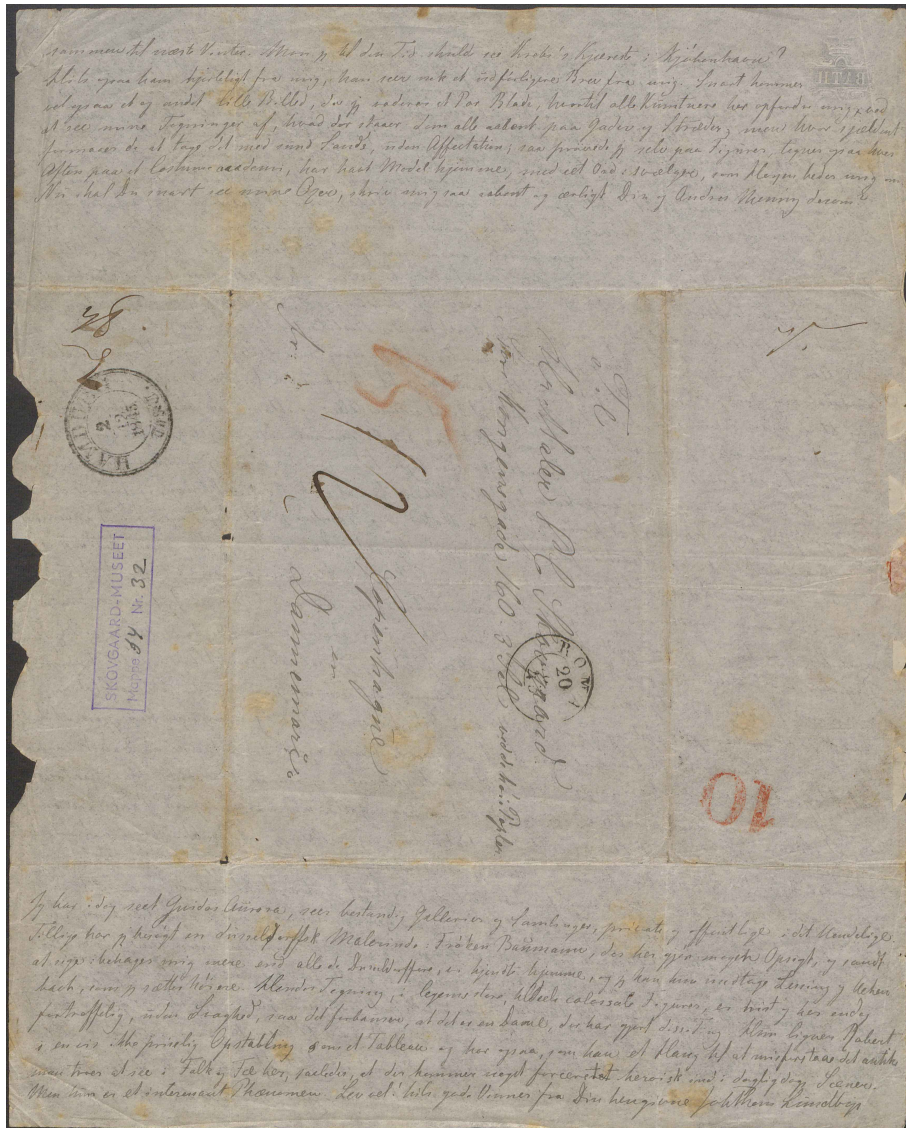 sammen til næste Vinter. Mon p til den Tid skulde see Krohn's Kjæreste i Kjöbenhavn?
ogsaa ham hjerteligt fra mig, han seer nok et udförligere Brev fra mig. Snart kommer
vel ogsaa et og andet lille Billed, da jeg raderer et Par Blade, hvortil alle Kunstnere her opfordre mig, ved
at see mine Tegninger af, hvad der staaer dem alle aabent paa Gader og Stræder, men hvor sjældent
formaaer de at tage det med sund Sands, uden Affectation; saa prövede jeg selv paa Figurer, tegner ogsaa hver
Aften paa et Costumeacademi, har havt Model hjemme, med eet Ord: svælger, som Höyen beder mig om
Nu skal Du snart see mine Öxer, skriv mig saa aabent og ærligt Din og Andres Mening derom?
BATH
HAMBURG
2
1845
SKOVGAARD-MUSEET
Mappe 34 Nr. 32
Til
Hr. Maler P. C. Skovgaard
St. Kongensgade 160. 3 Sal
Kopenhague
en
Dannemark
ROMA
20
15
12
10
Jeg har i dag seet Guidos Aurora, seer bestandig Gallerier og Samlinger, private og offentlige i det Uendelige.
Tillige har jeg besögt en düsseldorffsk Malerinde: Fröken Baumann, der her gjör meget Opsigt, og sandt
at sige: behager mig mere end alle de Düsseldorffere, vi kjende hjemme, og jeg kan kun undtage Lessing og Achen-
bach, som jeg sætter höiere. Hendes Tegning, i legemsstore, tildeels colossale Figurer, er tvist og her endog
fortræffelig, uden Svaghed, saa det forbauser, at det er en Dame, der har gjort disse Ting. Hun ligner Robert
i en vis ikke priselig Opstabling som et Tableau og har ogsaa, som han et Hang til at misforstaae det antike
man troer at see i Folk og Fæ her, saaledes, at der kommer noget forceret heroisk ind i dagligdags Scener.
Men hun er et interessant Phænomen. Lev vel! hils gode Venner fra Din hengivne Joh Thom: Lundbye